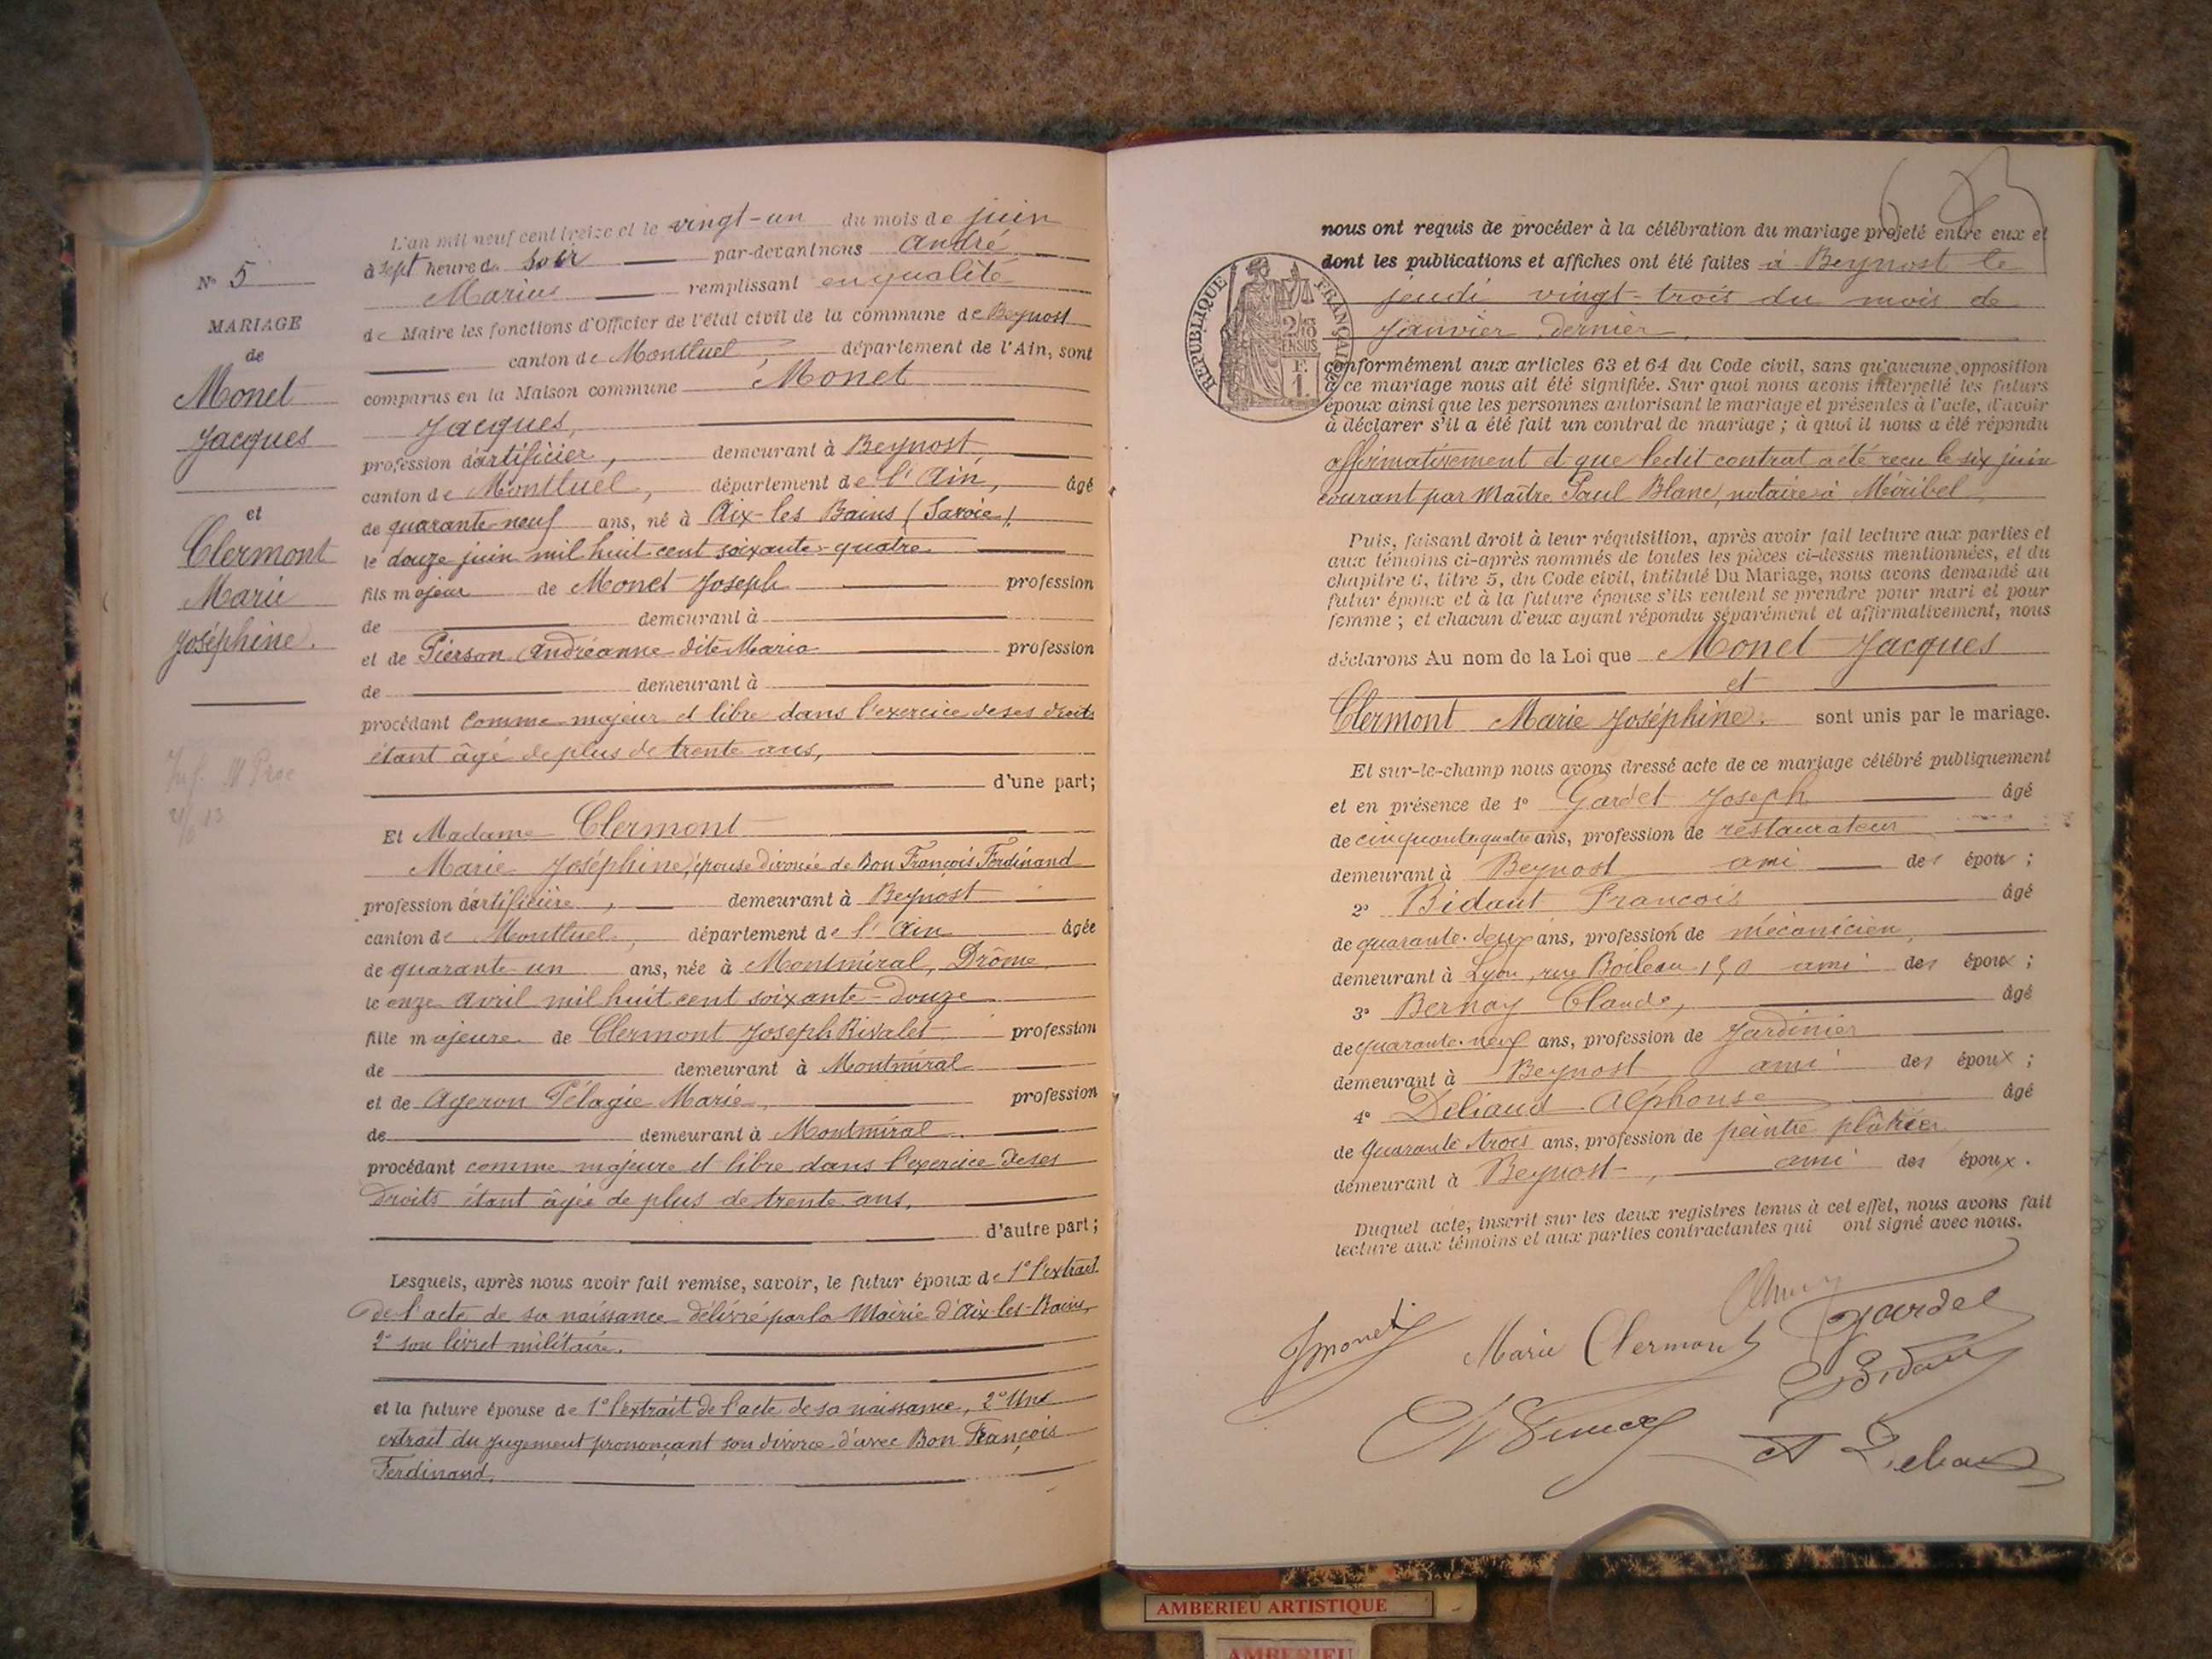 N° 5
MARIAGE
de
Monet
Jacques
et
Clermont
Marie
Joséphine.
Inf. M Proc
L'an mil neuf cent treize et le vingt-un du mois de juin
à sept heure du soir par-devant nous André
Marius remplissant en qualité
de Maire les fonctions d'Officier de l'état civil de la commune de Beynost
canton de Montluel, département de l'Ain, sont
comparus en la Maison commune Monet
Jacques,
profession d'artificier, demeurant à Beynost,
canton de Montluel, département de l'Ain, âgé
de quarante-neuf ans, né à Aix-les Bains (Savoie),
le douze juin mil huit cent soixante-quatre
fils majeur de Monet Joseph profession
de demeurant à
et de Pierson Andréanne dite Maria profession
de demeurant à
procédant comme majeur et libre dans l'exercice de ses droits
étant âgé de plus de trente ans,
d'une part;
Et Madame Clermont
Marie Joséphine, épouse divorcée de Bon François Ferdinand
profession d'artificière, demeurant à Beynost
canton de Montluel, département de l'Ain âgée
de quarante-un ans, née à Montmiral, Drôme
le onze avril mil huit cent soixante-douze
fille majeure de Clermont Joseph Rivalet profession
de demeurant à Montmiral
et de Ageron Pélagie Marie, profession
de demeurant à Montmiral
procédant comme majeure et libre dans l'exercice de ses
droits étant âgée de plus de trente ans,
d'autre part;
Lesquels, après nous avoir fait remise, savoir, le futur époux de 1° l'extrait
de l'acte de sa naissance délivré par la Mairie d'Aix-les-Bains,
2° son livret militaire.
et la future épouse de 1° l'extrait de l'acte de sa naissance, 2° Un
extrait du jugement prononçant son divorce d'avec Bon François
Ferdinand,
nous ont requis de procéder à la célébration du mariage projeté entre eux et
dont les publications et affiches ont été faites à Beynost le
jeudi vingt-trois du mois de
Janvier dernier
RÉPUBLIQUE FRANÇAISE
conformément aux articles 63 et 64 du Code civil, sans qu'aucune opposition
à ce mariage nous ait été signifiée. Sur quoi nous avons interpellé les futurs
époux ainsi que les personnes autorisant le mariage et présentes à l'acte, d'avoir
à déclarer s'il a été fait un contrat de mariage; à quoi il nous a été répondu
affirmativement et que ledit contrat a été reçu le six juin
courant par Maître Paul Blanc, notaire à Méribel
Puis, faisant droit à leur réquisition, après avoir fait lecture aux parties et
aux témoins ci-après nommés de toutes les pièces ci-dessus mentionnées, et du
chapitre 6, titre 5, du Code civil, intitulé Du Mariage, nous avons demandé au
futur époux et à la future épouse s'ils veulent se prendre pour mari et pour
femme; et chacun d'eux ayant répondu séparément et affirmativement, nous
déclarons Au nom de la Loi que Monet Jacques
et
Clermont Marie Joséphine. sont unis par le mariage.
Et sur-le-champ nous avons dressé acte de ce mariage célébré publiquement
et en présence de 1° Gardet Joseph âgé
de cinquante quatre ans, profession de restaurateur
demeurant à Beynost ami des époux;
2° Bidaut François âgé
de quarante-deux ans, profession de mécanicien,
demeurant à Lyon, rue Boileau 150 ami des époux;
3° Bernay Claude, âgé
de quarante-neuf ans, profession de Jardinier
demeurant à Beynost ami des époux;
4° Déliaud Alphonse âgé
de Quarante trois ans, profession de peintre plâtrier
demeurant à Beynost, ami des époux.
Duquel acte, inscrit sur les deux registres tenus à cet effet, nous avons fait
lecture aux témoins et aux parties contractantes qui ont signé avec nous.
J monet Marie Clermont Gardet
AMBERIEU ARTISTIQUE
AMBERIEU